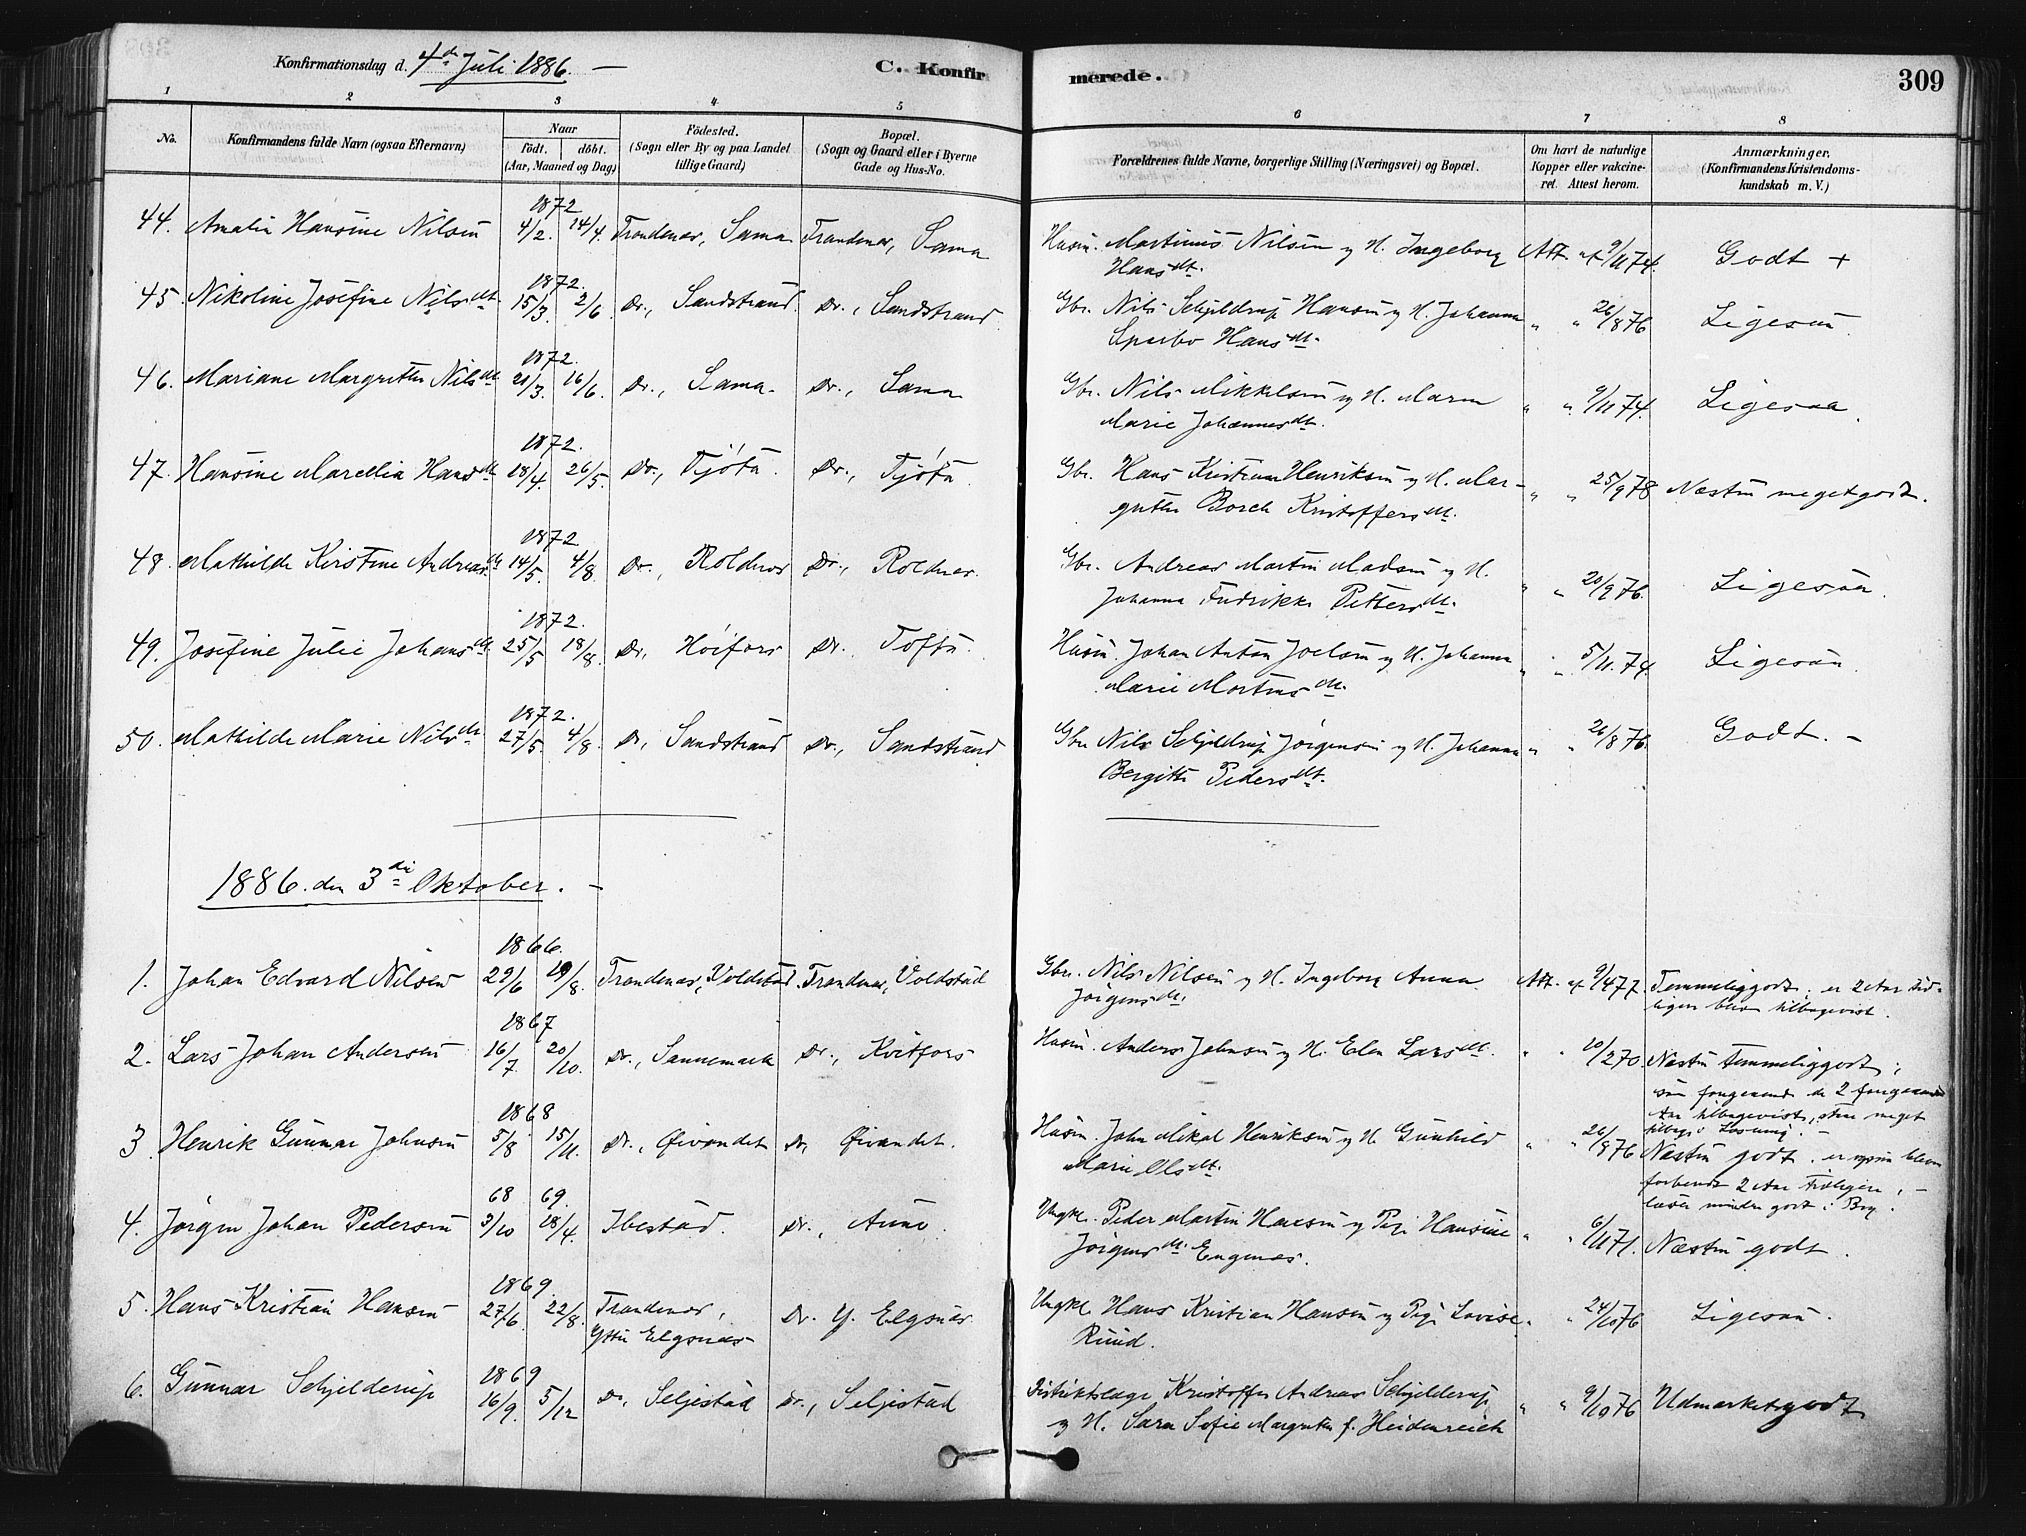 Konfirmationsdag d. 4de Juli 1886. –
C. Konfirmerede.
309
1 2 3 4 5 6 7 8
No. Konfirmandens fulde Navn (ogsaa Efternavn) Naar födt. döbt. (Aar, Maaned og Dag) Födested. (Sogn eller By og paa Landet tillige Gaard) Bopæl. (Sogn og Gaard eller i Byerne Gade og Hus-No. Forældrenes fulde Navne, borgerlige Stilling (Næringsvei) og Bopæl. Om havt de naturlige Kopper eller vakcineret. Attest herom. Anmærkninger. (Konfirmandens Kristendomskundskab m. V.)
1872
44. Amalie Hansine Nilsen 4/2. 14/4. Trondenæs, Sama Trondenæs, Sama Husm. Martinus Nilsen og H. Ingeborg Att. af 9/11 74. Godt +
Hansdt.
1872.
45 Nikoline Josefine Nilsdt. 15/3. 2/6 Do., Sandstrand Do., Sandstrand Gbr. Nils Schjeldrup Hansen og H. Johanna " " 26/8 76 Ligesaa
Sparbo Hansdt.
1872.
46. Mariane Margrethe Nilsdt 21/3. 16/6. Do., Sama. Do., Sama Gbr. Nils Mikkelsen og H. Maren " " 9/11 74. Ligesaa.
Marie Johannesdt.
1872.
47. Hansine Marellia Hansdt 18/4. 26/5. Do., Tjøtta. Do., Tjøtta. Gbr. Hans Kristian Henriksen og H. Mar- " " 25/9 78 Næsten meget godt.
grethe Borch Kristoffersdt.
1872
48. Mathilde Kirstine Andreasdt 14/5. 4/8. Do., Roldnæs Do., Roldnæs. Gbr. Andreas Martin Madsen og H. " " 20/9 76. Ligesaa.
Johanna Fredrikke Pettersdt.
1872.
49. Josefine Julie Johansdt. 25/5 18/8. Do, Høifors Do. Tofta. Husm. Johan Anton Joelsen og H. Johanna " " 5/11. 74. Ligesaa.
Marie Mortensdt.
1872.
50. Mathilde Marie Nilsdt. 27/5. 4/8. Do, Sandstrand Do., Sandstrand Gbr. Nils Schjeldrup Jørgensen og H. Johanna " " 26/8 76. Godt. –
Bergitte Pedersdt.
1886. den 3die Oktober. –
1866.
1. Johan Edvard Nilsen 29/6 19/8. Trondenæs, Voldstad. Trondenæs, Voldstad Gbr. Nils Nilsen og H. Ingeborg Anna Att. af 9/4 77. Temmeliggodt. er 2 Aar tid-
Jørgensdt. ligere blev tilbagevist.
1867
2. Lars Johan Andersen 16/7. 20/10. Do., Sannemark Do., Kvitfors Husm. Anders Johnsen og H. Elen Larsdt. " " 10/2 70. Næsten temmeliggodt;
de 2
Aar tilbagevist, men meget
tilbage i Læsning. –
1868
3. Henrik Gunnar Johnsen 5/8 15/11. Do., Øivandet Do, Øivandet. Husm. John Mikal Henriksen og H. Gunhild " " 26/8 76 Næsten godt.
Marie Olsdt. 2 Aar tidligere; –
læser mindre godt i Bog.
68 69.
4. Jørgen Johan Pedersen 3/10 18/4. Ibestad. Do., Aune. Ungkl. Peder Martin Hansen og Pige Hansine " " 6/11 71. Næsten godt.
Jørgensdt. Engenæs.
1869.
5. Hans Kristian Hansen 27/6. 22/8. Trondenæs, Do. Y. Elgsnæs Ungkl. Hans Kristian Hansen og Pige Lovise " " 24/10 76 Ligesaa.
Yttre Elgsnæs Ruud.
1869
6. Gunnar Schjelderup 16/9. 5/12 Do, Seljestad Do., Seljestad Distriktslæge Kristoffer Andreas Schjelderup " " 9/10 76 Udmærket godt
og H. Sara Sofie Margrethe f. Heidenreich